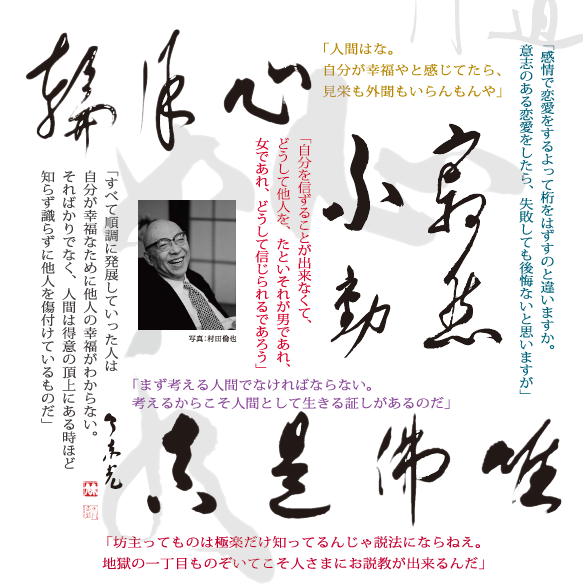 心月輪
「人間はな。
自分が幸福やと感じてたら、
見栄も外聞もいらんもんや」
「感情で恋愛をするよって桁をはずすのと違いますか。
意志のある恋愛をしたら、失敗しても後悔ないと思いますが」
寂然
不動
「自分を信ずることが出来なくて、
どうして他人を、たといそれが男であれ、
女であれ、どうして信じられるであろう」
写真:村田
「すべて順調に発展していった人は
自分が幸福なために他人の幸福がわからない。
そればかりでなく、人間は得意の頂上にある時ほど
知らず識らずに他人を傷付けているものだ」
「まず考える人間でなければならない。
考えるからこそ人間として生きる証しがあるのだ」
唯佛是真
今東光
「坊主ってものは極楽だけ知ってるんじゃ説法にならねえ。
地獄の一丁目ものぞいてこそ人さまにお説教が出来るんだ」